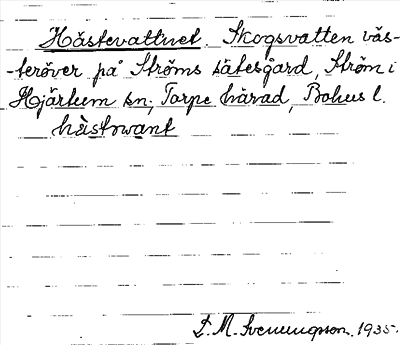 Hästevattnet. Skogsvatten väs-
-teröver på Ströms sätesgård, Ström i
Hjärtum sn; Torpe härad, Bohus l.
hästwant
S. M. Svenungsson. 1935.